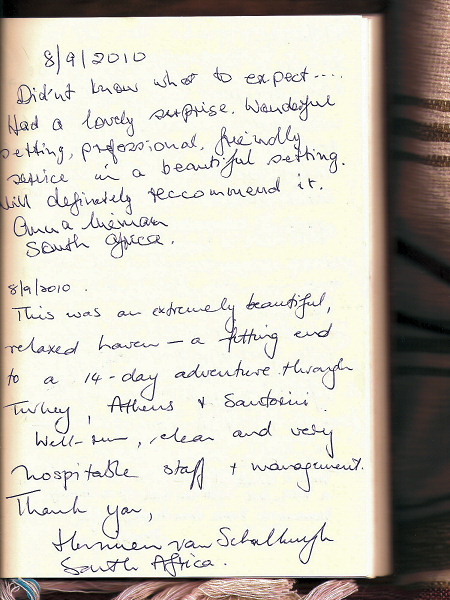 8/9/2010
Did'nt know what to expect....
Had a lovely surprise. Wonderful
setting, professional, friendly
service in a beautiful setting.
Will definately reccommend it.
Anna
South Africa.
8/9/2010.
This was an extremely beautiful,
relaxed haven – a fitting end
to a 14-day adventure through
Turkey, Athens + Santorini.
Well-run, clean and very
hospitable staff + management.
Thank you,
van Schalkwyk
South Africa.